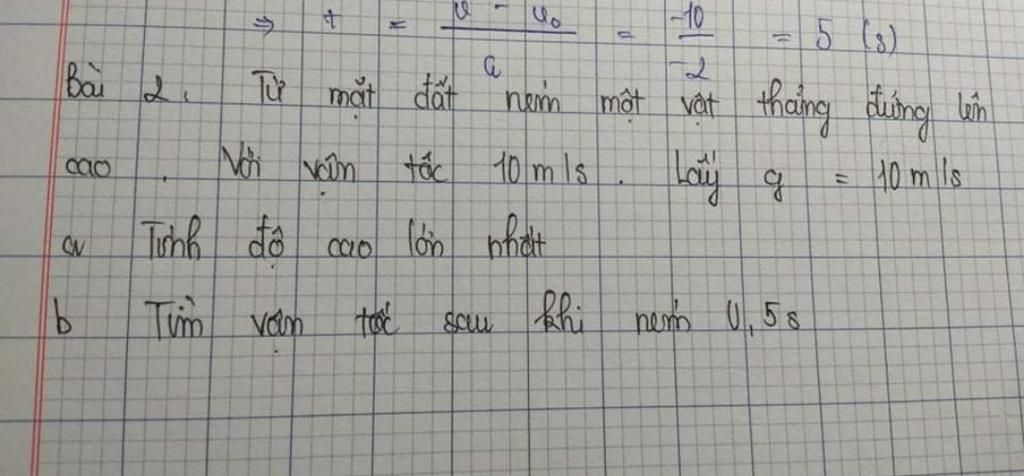 ⇒ t = (v - v₀)/a = -10/-2 = 5 (s)
Bài 2. Từ mặt đất ném một vật thẳng đứng lên
cao. Với vận tốc 10 m/s. Lấy g = 10 m/s
a Tính độ cao lớn nhất
b Tìm vận tốc sau khi ném 0,5s